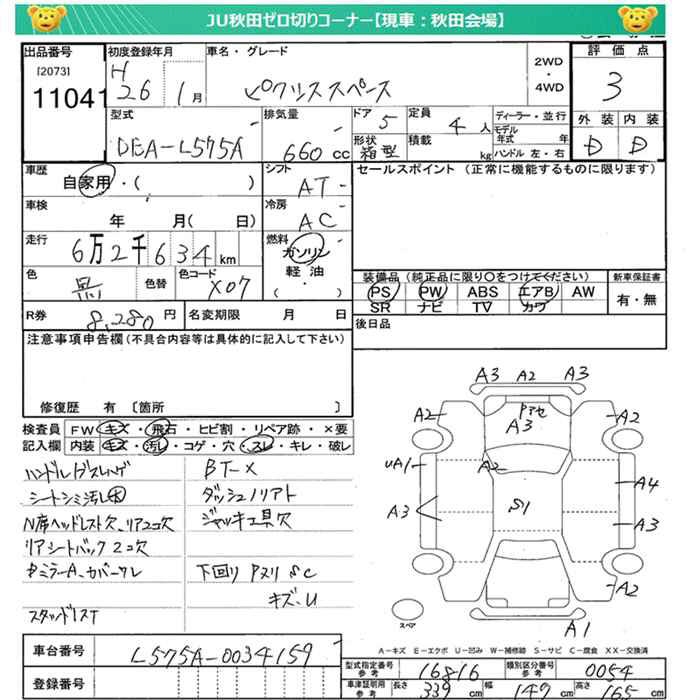 JU秋田ゼロ切りコーナー【現車：秋田会場】
出品番号
[2073]
11041
初度登録年月
H
26 1月
車名・グレード
ピクシススペース
2WD
・
4WD
評価点
3
外装 内装
D D
型式
DBA-L575A
排気量
660 cc
ドア
5
形状
箱型
定員
4 人
積載
kg
ディーラー・並行
モデル年式 年
ハンドル 左・右
車歴
自家用・( )
シフト
AT
セールスポイント (正常に機能するものに限ります)
車検
年 月( 日)
冷房
AC
走行
6万2千634km
燃料
ガソリン
軽油
・( )
色
黒
色替
色コード
X07
装備品(純品に限り○をつけてください)
PS PW ABS エアB AW
SR ナビ TV カワ
新車保証書
有・無
R券
8,280円
名変期限 月 日
後日品
注意事項申告欄(不具合内容等は具体的に記入して下さい)
修復歴 有 〔箇所 〕
検査員
記入欄
FW キズ・飛石・ヒビ割・リペア跡・×要
内装 キズ・汚レ・コゲ・穴・スレ・キレ・破レ
シートシミ汚レ大
N席ヘッドレスト欠、リア2コ欠
リアシートバック2コ欠
BT-X
ジャッキ工具欠
下回り Pヌリ SC
キズ、U
A3 A2 A3
A2
A3
A2
UA1
A2
A4
A3
S1
A3
A2
A1
スペア
A－キズ E－エクボ U－凹み W－補修跡 S－サビ C－腐食 XX－交換済
車台番号
L575A-0034159
登録番号
型式指定番号
参考
16816
類別区分番号
参考
0054
車庫証明用
参考
長さ 339 cm
幅 147 cm
高さ 165 cm